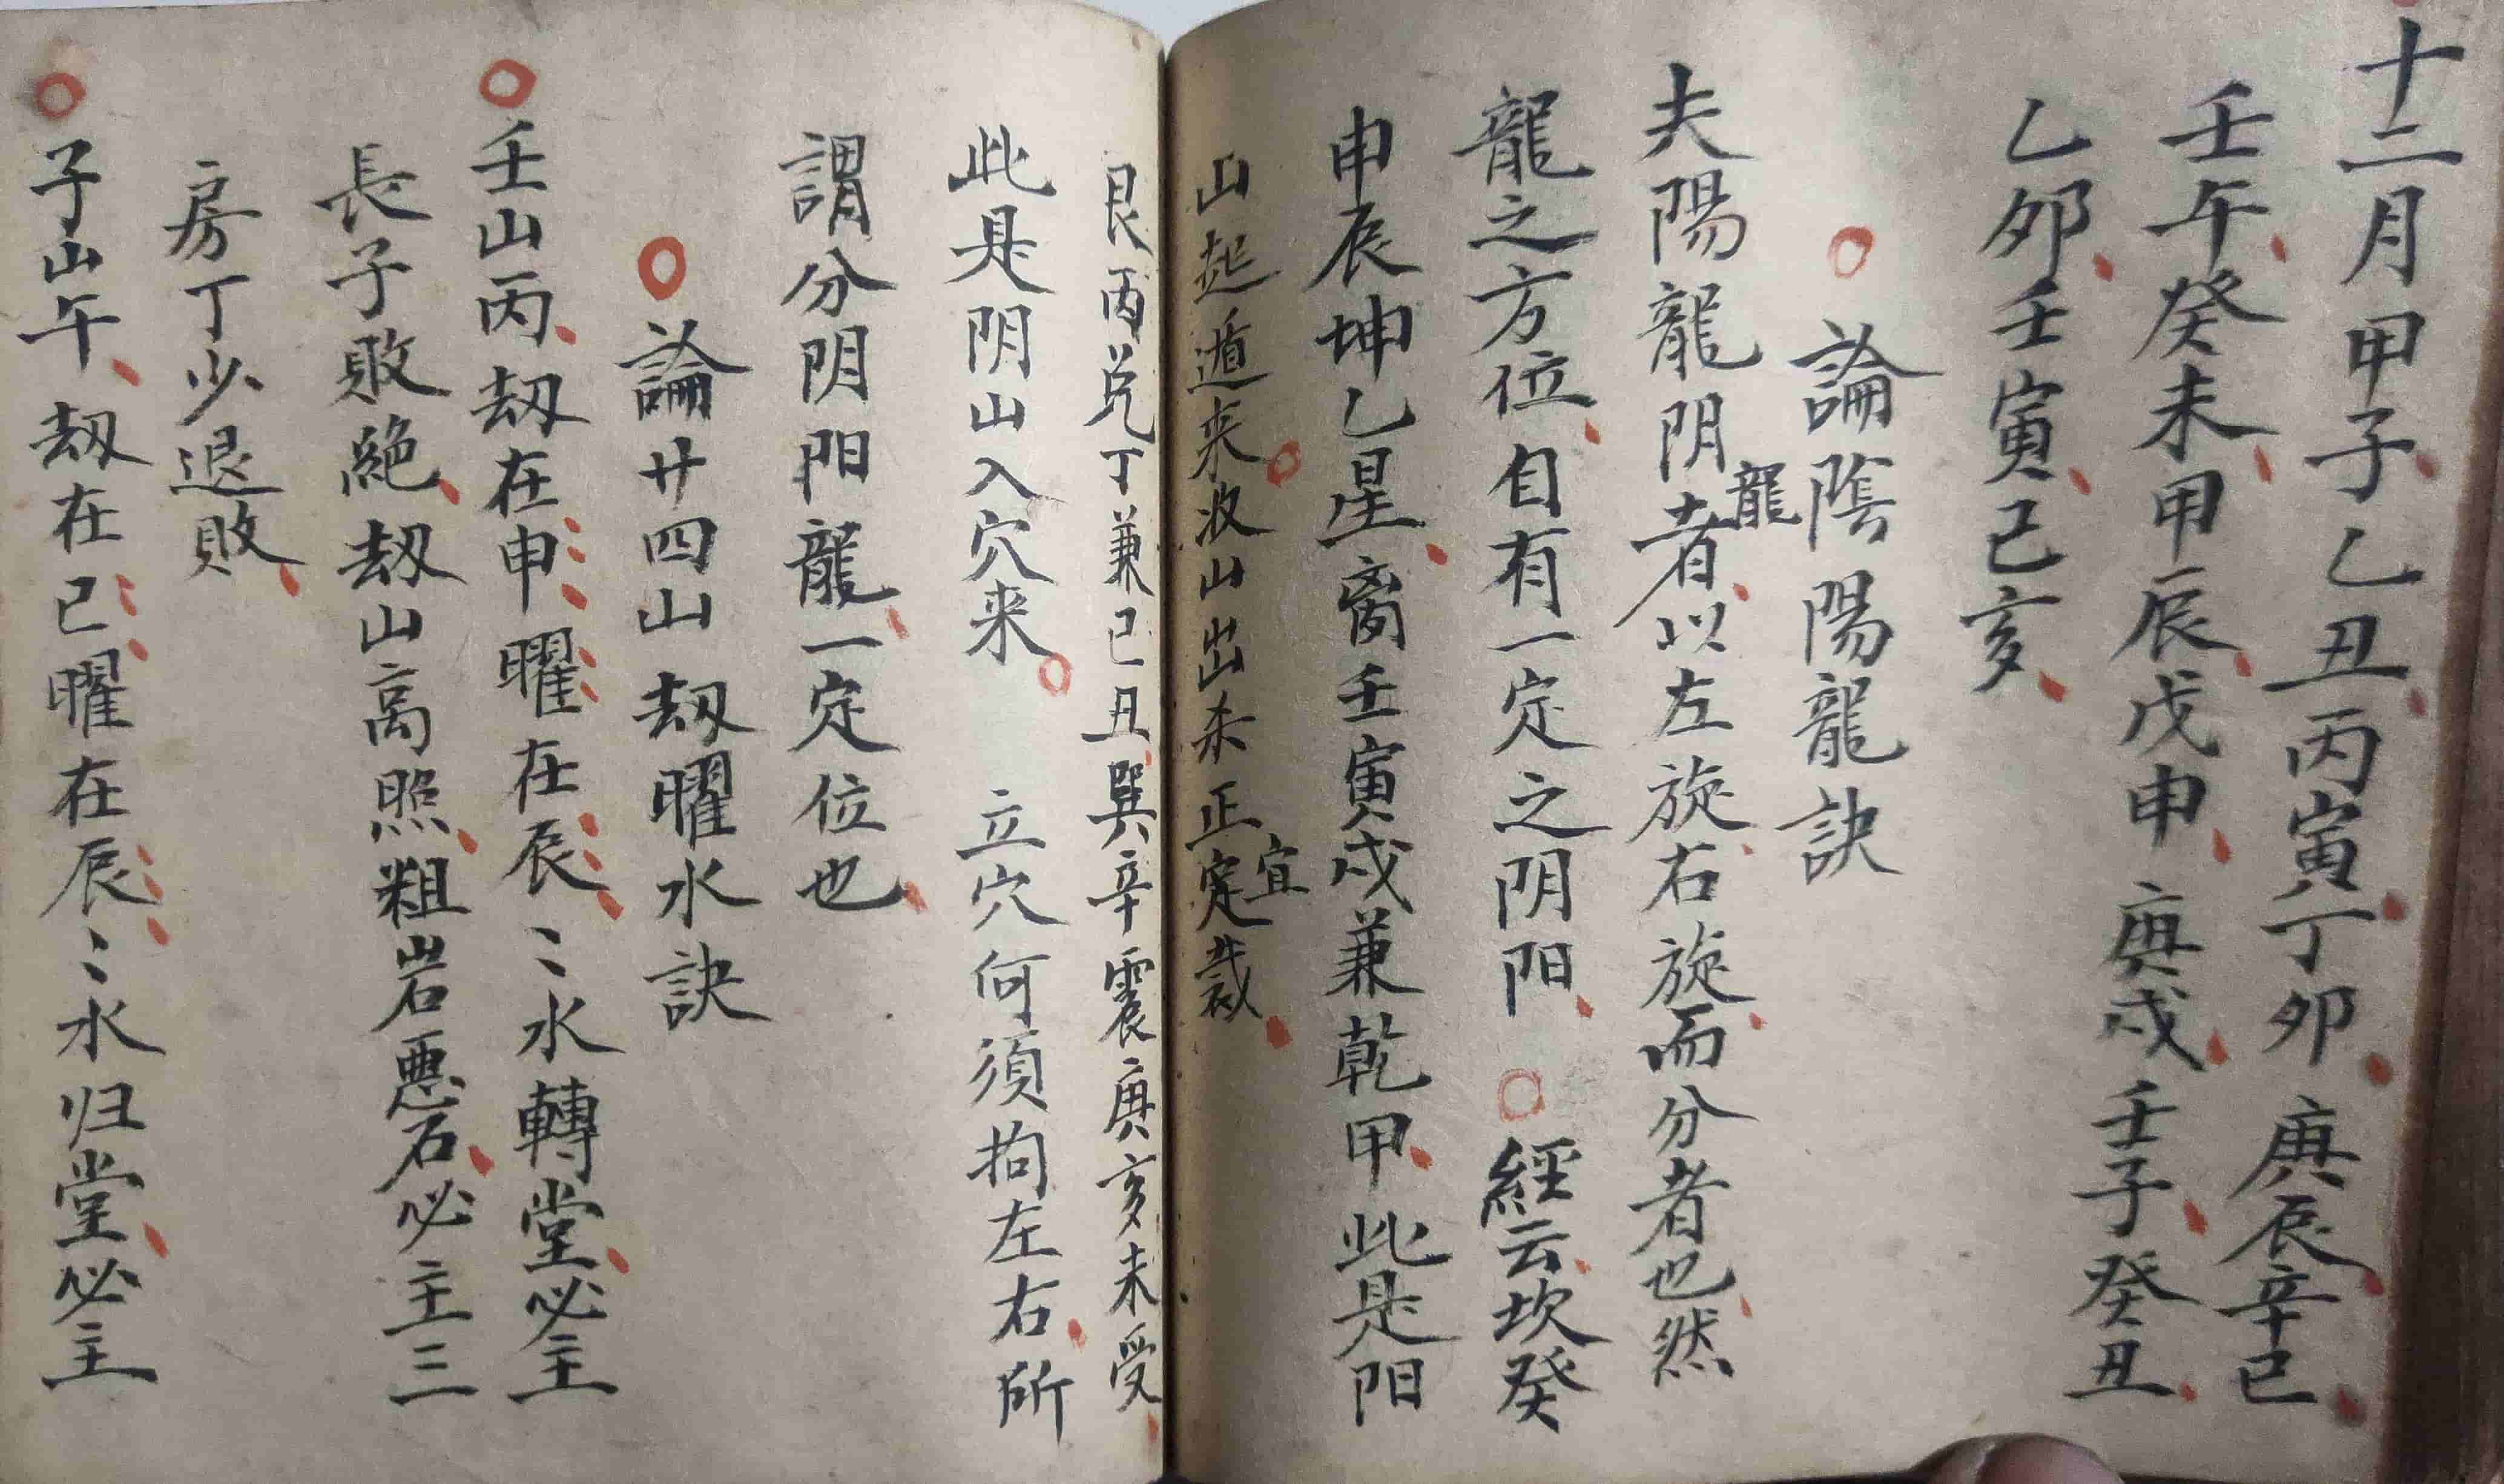 十二月甲子乙丑丙寅丁卯庚辰辛巳
壬午癸未甲辰戊申庚戌壬子癸丑
乙卯壬寅己亥
論陰陽龍訣
夫陽龍阴龍者以左旋右旋而分者也然
龍之方位自有一定之阴阳經云坎癸
申辰坤乙星离壬寅戌兼乾甲此是阳
山起遁来收山出杀正宜定裁
艮丙兑丁兼巳丑巽辛震庚亥未受
此是阴山入穴来 立穴何須拘左右所
謂分阴阳龍一定位也
論廿四山刼曜水訣
壬山丙刼在申曜在辰〻水轉堂必主
長子敗絶刼山高照粗岩悪石必主三
房丁少退敗
子山午刼在巳曜在辰〻水归堂必主